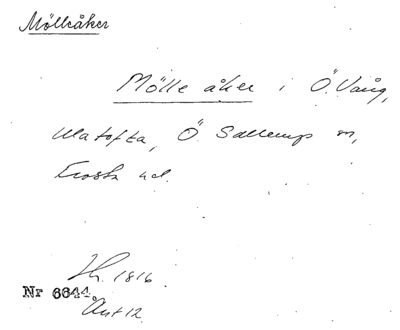 Mölleåker
Mölle åker i Ö. Vång,
Ulatofta, Ö. Sallerup sn,
Frosta hd.
1816
Nr 6644
Akt 12